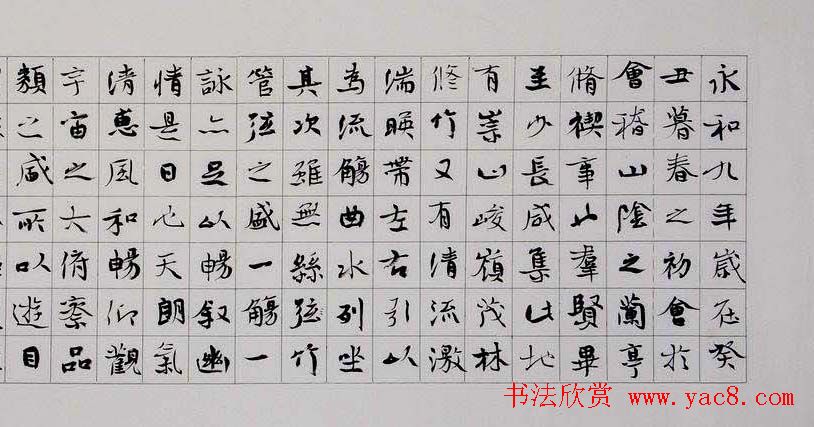 永和九年歲在癸
丑暮春之初會於
會稽山陰之蘭亭
脩禊事也羣賢畢
至少長咸集此地
有崇山峻嶺茂林
修竹又有清流激
湍暎帶左右引以
為流觴曲水列坐
其次雖無絲弦竹
管弦之盛一觴一
詠亦足以暢叙幽
情是日也天朗氣
清惠風和暢仰觀
宇宙之大俯察品
類之咸所以遊目
书法欣赏 www.yac8.com